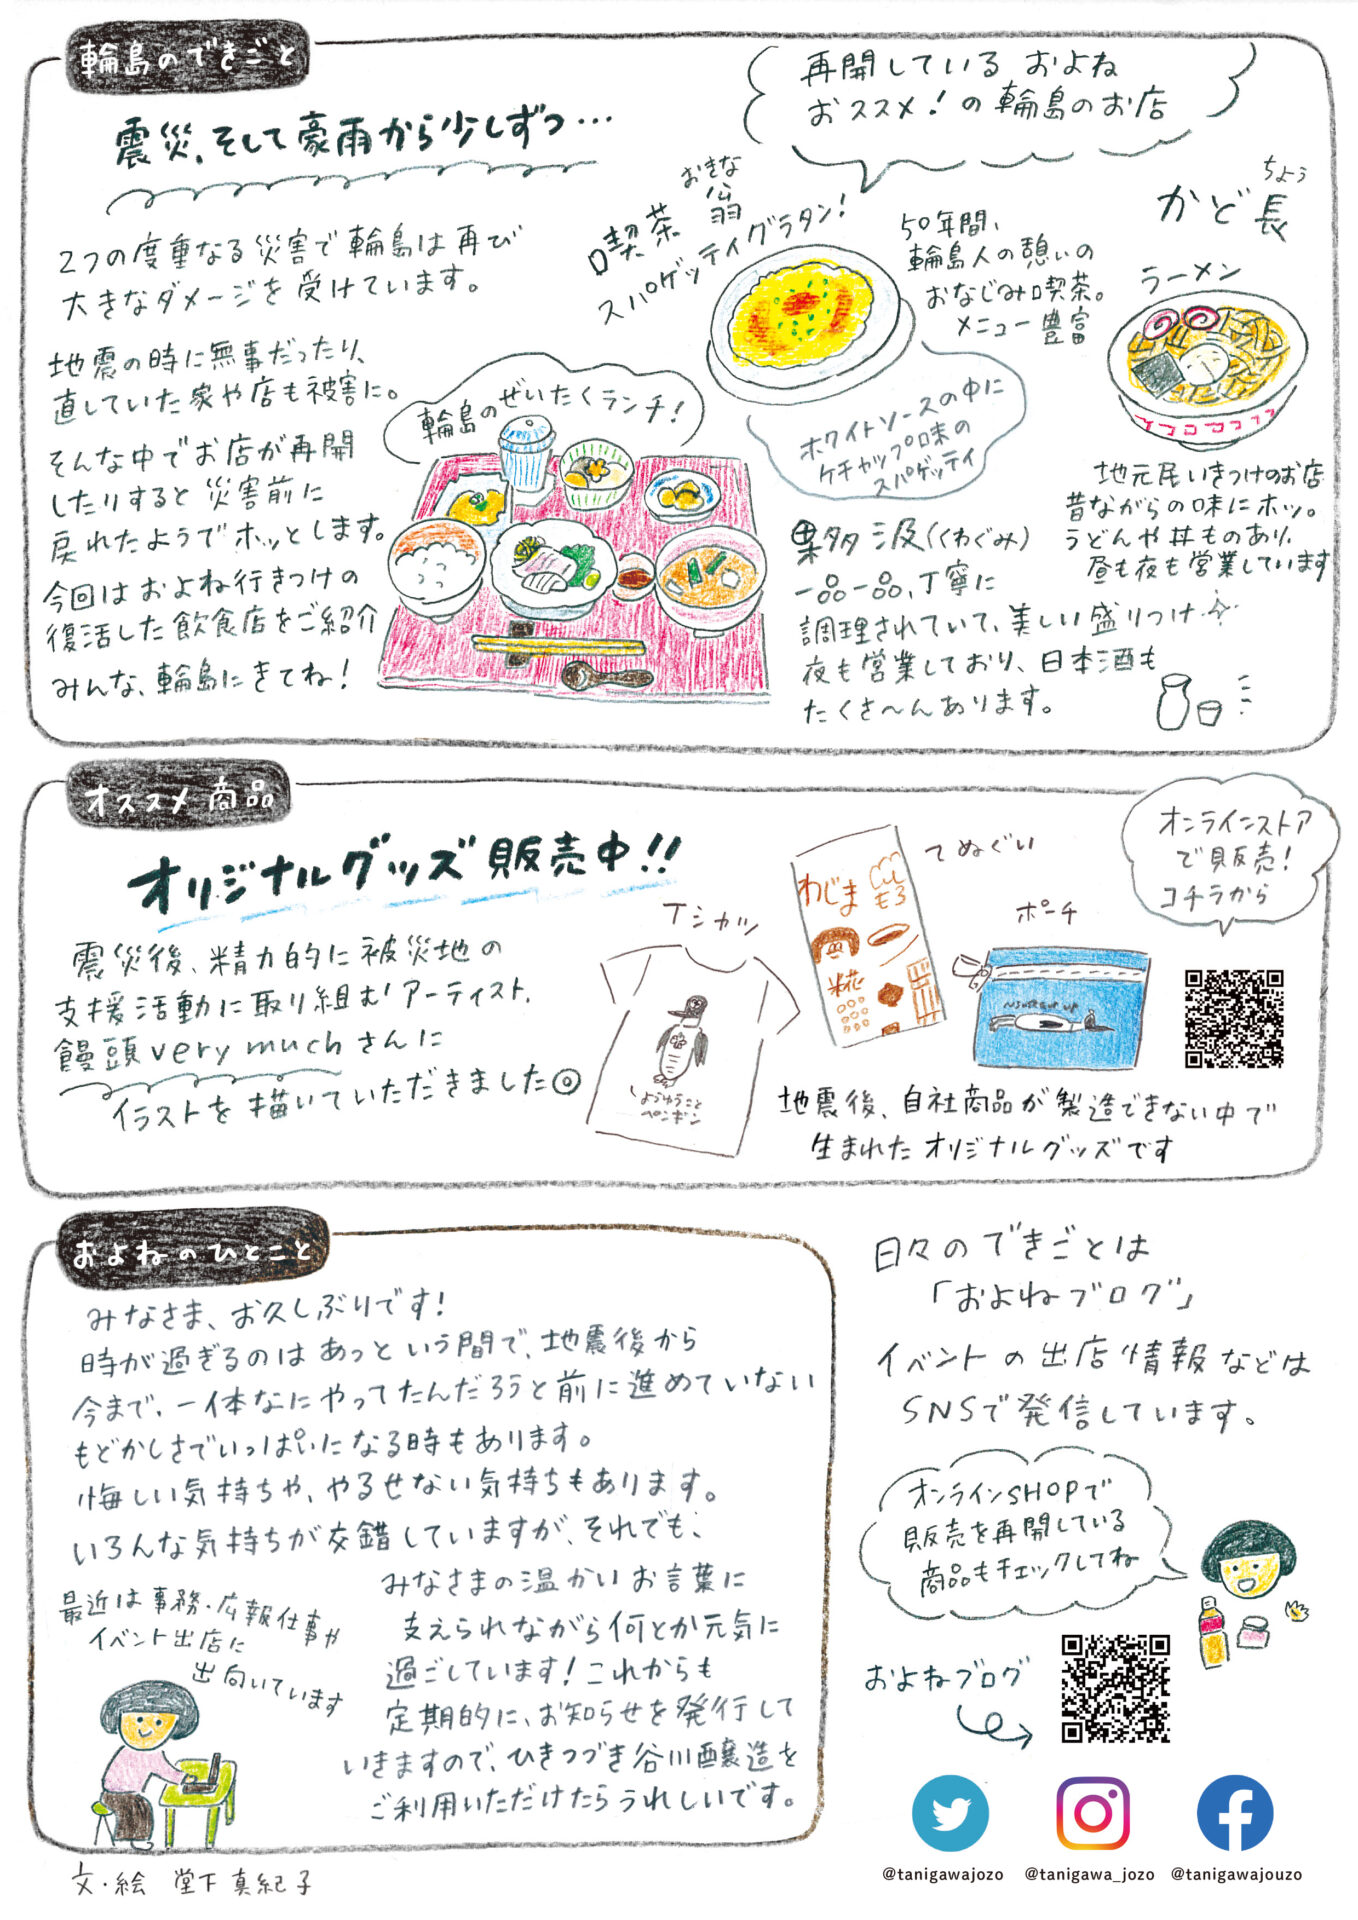 輪島のできごと
震災、そして豪雨から少しずつ…
2つの度重なる災害で輪島は再び
大きなダメージを受けています。
地震の時に無事だったり、
直していた家や店も被害に。
そんな中でお店が再開
したりすると災害前に
戻れたようでホッとします。
今回はおよね行きつけの
復活した飲食店をご紹介
みんな、輪島にきてね!
再開している およね
おススメ!の輪島のお店
おきな
喫茶 翁
スパゲッティグラタン!
50年間、
輪島人の憩いの
おなじみ喫茶。
メニュー豊富
ホワイトソースの中に
ケチャップ味の
スパゲッティ
ちょう
かど長
ラーメン
地元民いきつけのお店
昔ながらの味にホッ。
うどんや丼ものあり、
昼も夜も営業しています
輪島のぜいたくランチ!
(くわぐみ)
一品一品、丁寧に
調理されていて、美しい盛りつけ
夜も営業しており、日本酒も
たくさ〜んあります。
オススメ商品
オリジナルグッズ販売中!!
震災後、精力的に被災地の
支援活動に取り組む アーティスト、
饅頭very muchさんに
イラストを描いていただきました◎
Tシャツ
ようゆうこと
ペンギン
てぬぐい
わじま
糀
ポーチ
オンラインストア
で販売!
コチラから
地震後、自社商品が製造できない中で
生まれたオリジナルグッズです
およねのひとこと
みなさま、お久しぶりです!
時が過ぎるのはあっという間で、地震後から
今まで、一体なにやってたんだろうと前に進めていない
もどかしさでいっぱいになる時もあります。
悔しい気持ちや、やるせない気持ちもあります。
いろんな気持ちが交錯していますが、それでも、
みなさまの温かいお言葉に
支えられながら何とか元気に
過ごしています!これからも
定期的に、お知らせを発行して
いきますので、ひきつづき谷川醸造を
ご利用いただけたらうれしいです。
最近は事務・広報仕事や
イベント出店に
出向いています
文・絵 堂下真紀子
日々のできごとは
「およねブログ」
イベントの出店情報などは
SNSで発信しています。
オンラインSHOPで
販売を再開している
商品もチェックしてね
およねブログ
@tanigawajozo @tanigawa_jozo @tanigawajouzo